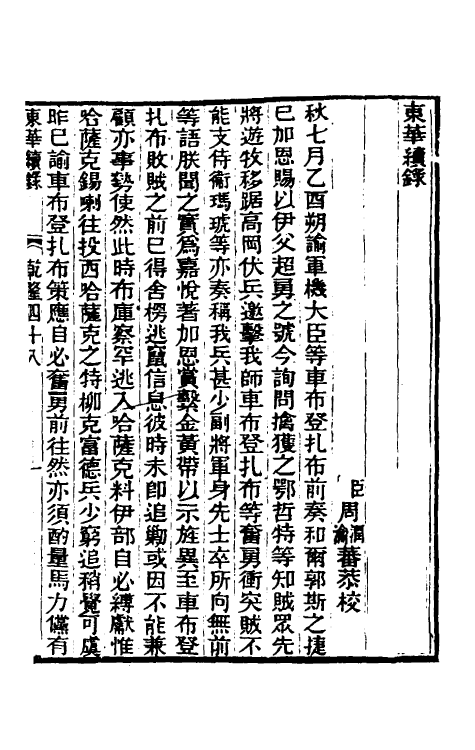 東華續錄
臣周潤蕃瀹蕃恭校
秋七月乙酉朔諭軍機大臣等車布登扎布前奏和爾郭斯之捷
已加恩賜以伊父超勇之號今詢問擒獲之鄂哲特等知賊眾先
將遊牧移踞高岡伏兵邀擊我師車布登扎布等奮勇衝突賊不
能支侍衞瑪琥等亦奏稱我兵甚少副將軍身先士卒所向無前
等語朕聞之實爲嘉悅著加恩賞繫金黃帶以示旌異至車布登
扎布敗賊之前已得舍楞逃竄信息彼時未卽追勦或因不能兼
顧亦事勢使然此時布庫察罕逃入哈薩克料伊部自必縛獻惟
哈薩克錫喇往投西哈薩克之特柳克富德兵少窮追稍覺可虞
昨已諭車布登扎布策應自必奮勇前往然亦須酌量馬力儻有
東華續錄 乾隆四十八